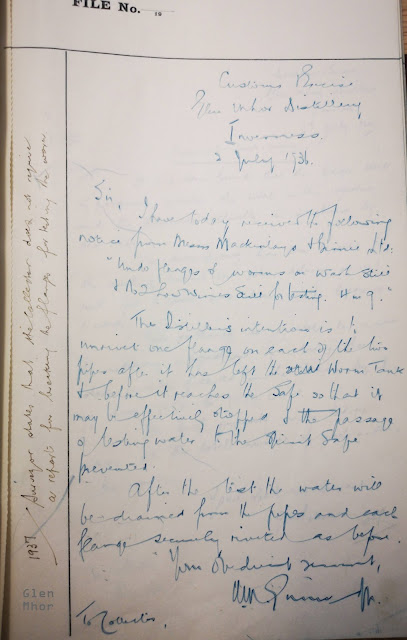 FILE No. 19
Customs Excise
Glen Mhor Distillery
Inverness.
2 July 1936.
Sir,
I have today received the following
notice from Messrs Mackinlays & Birnie Ltd:
"Undo flanges of worms on Wash Still
& No 2 Low Wines Still for testing.
The Distillers intentions is to
unrivet one flange on each of the two
pipes after it has left the Worm Tank
& before it reaches the Safe so that it
may be effectively stopped & the passage
of testing water to the Spirit Safe
prevented.
After the test the water will
be drained from the pipes and each
flange securely riveted as before.
Your Obedient Servant,
To Collector.
1937 Surveyor states that the Collector does not require
a report for breaking the flange for testing the worm.
Glen
Mhor